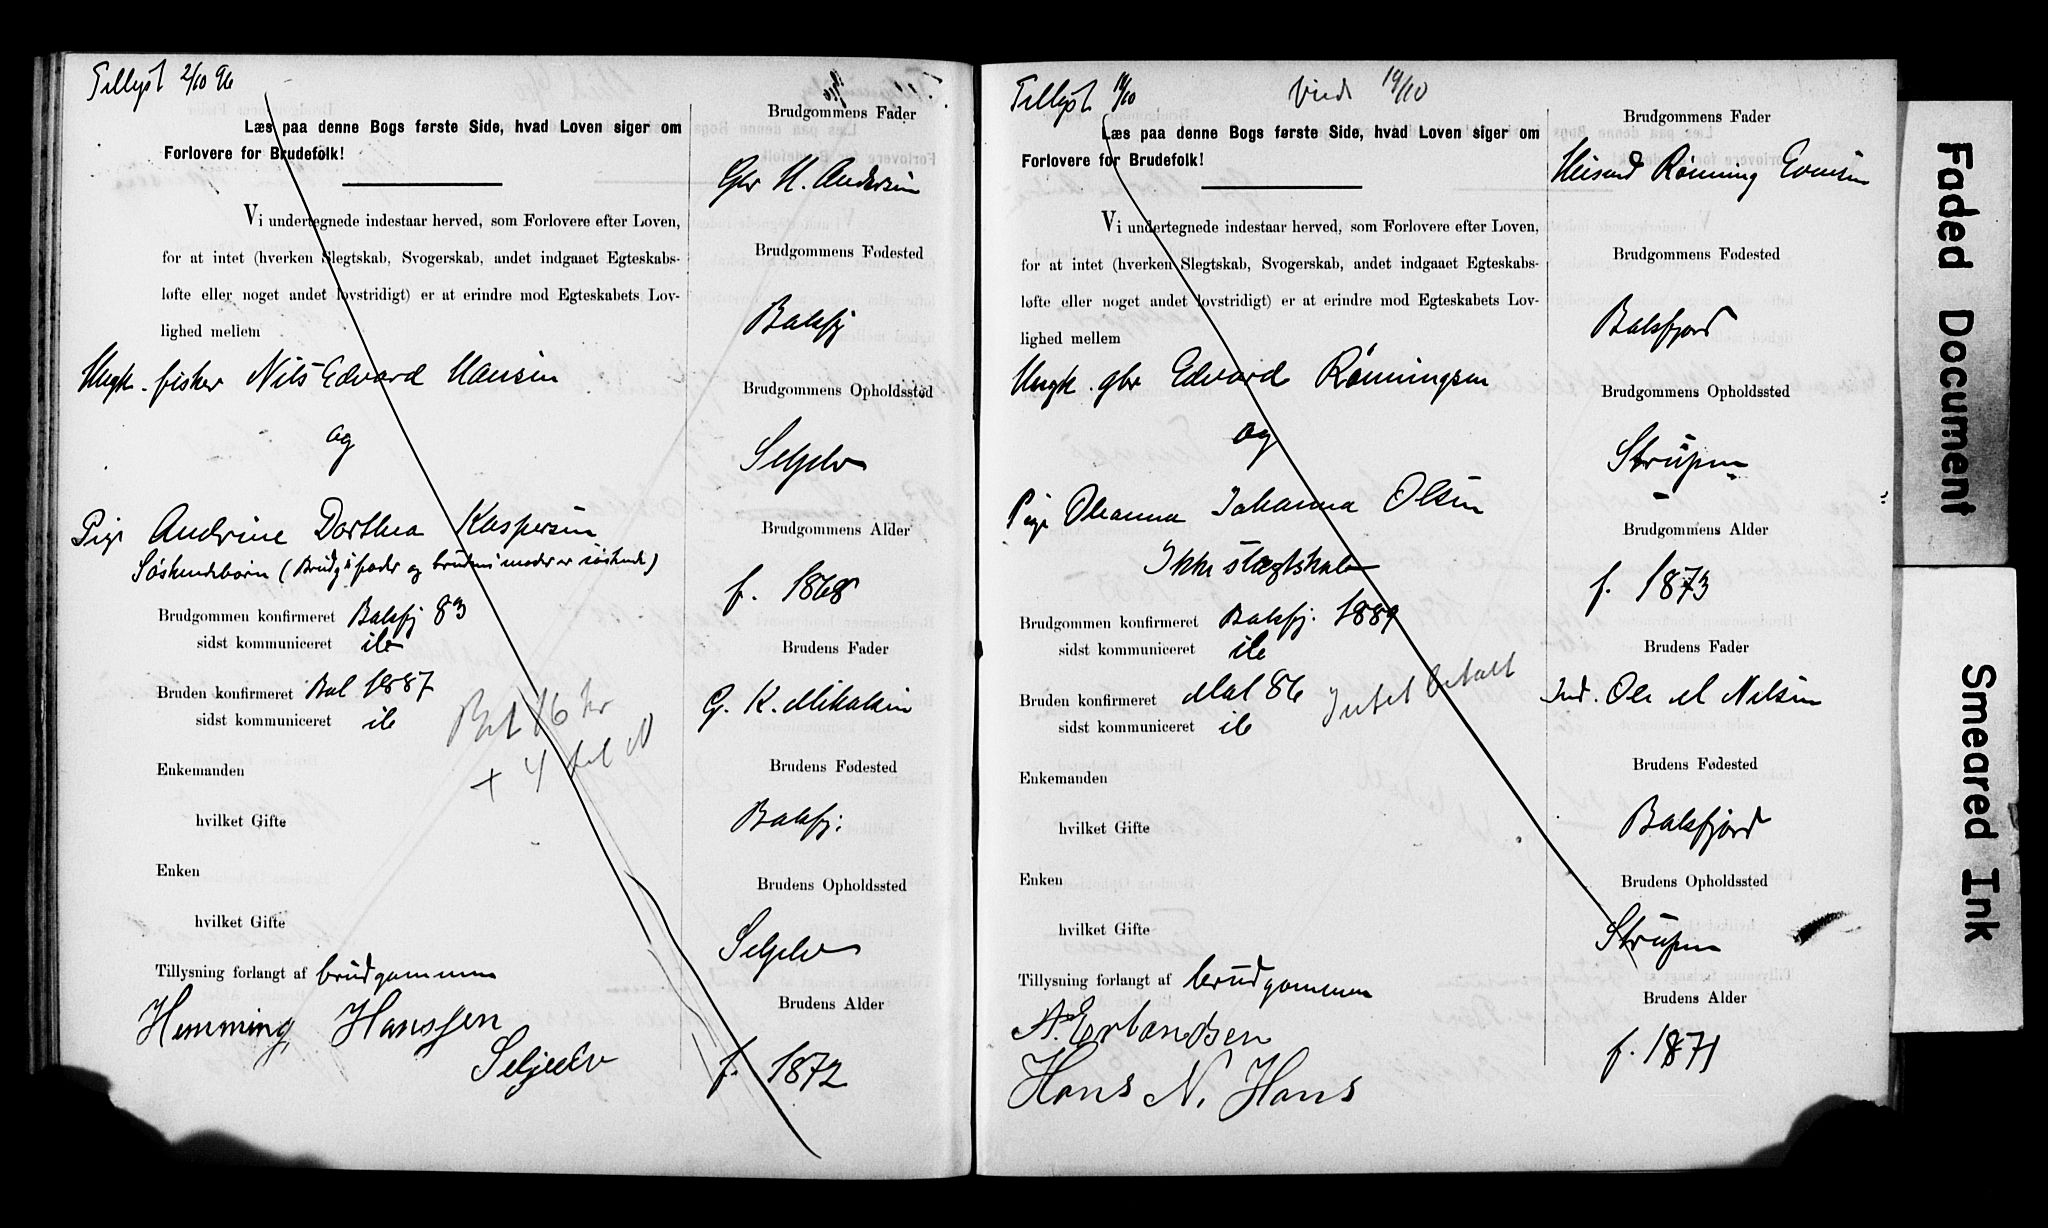 Tillyst 2/10 96
Læs paa denne Bogs første Side, hvad Loven siger om
Forlovere for Brudefolk!
Vi undertegnede indestaar herved, som Forlovere efter Loven,
for at intet (hverken Slegtskab, Svogerskab, andet indgaaet Egteskabs-
løfte eller noget andet lovstridigt) er at erindre mod Egteskabets Lov-
lighed mellem
Ungk. fisker Nils Edvard Hansen
og
Pige Andrine Dorthea Kaspersen
Søskendebørn (Brudg.s fader og brudens moder er søskende)
Brudgommen konfirmeret Balsfj 83
sidst kommuniceret
Bruden konfirmeret Bal 1887
sidst kommuniceret
Bet 16 kr
+ 4 til N
Enkemanden
hvilket Gifte
Enken
hvilket Gifte
Tillysning forlangt af brudgommen
Hemming Hanssen
Seljeelv
Brudgommens Fader
Gbr H. Andersen
Brudgommens Fødested
Balsfj
Brudgommens Opholdssted
Seljelv
Brudgommens Alder
f. 1868
Brudens Fader
G. K. Mikalsen
Brudens Fødested
Balsfj.
Brudens Opholdssted
Seljelv
Brudens Alder
f. 1872
Tillyst 11/10 Viede 19/10
Læs paa denne Bogs første Side, hvad Loven siger om
Forlovere for Brudefolk!
Vi undertegnede indestaar herved, som Forlovere efter Loven,
for at intet (hverken Slegtskab, Svogerskab, andet indgaaet Egteskabs-
løfte eller noget andet lovstridigt) er at erindre mod Egteskabets Lov-
lighed mellem
Ungk. gbr Edvard Rønningsen
og
Pige Oleanna Johanna Olsen
Ikke slægtskab
Brudgommen konfirmeret Balsfj. 1889
sidst kommuniceret
Bruden konfirmeret Mal 86
sidst kommuniceret
Intet betalt
Enkemanden
hvilket Gifte
Enken
hvilket Gifte
Tillysning forlangt af brudgommen
A. Erlandsen
Hans N. Hans
Brudgommens Fader
Rønning
Brudgommens Fødested
Balsfjord
Brudgommens Opholdssted
Strupen
Brudgommens Alder
f. 1873
Brudens Fader
Ind. Ole M Nilsen
Brudens Fødested
Balsfjord
Brudens Opholdssted
Strupen
Brudens Alder
f. 1871
Faded Document
Smeared Ink